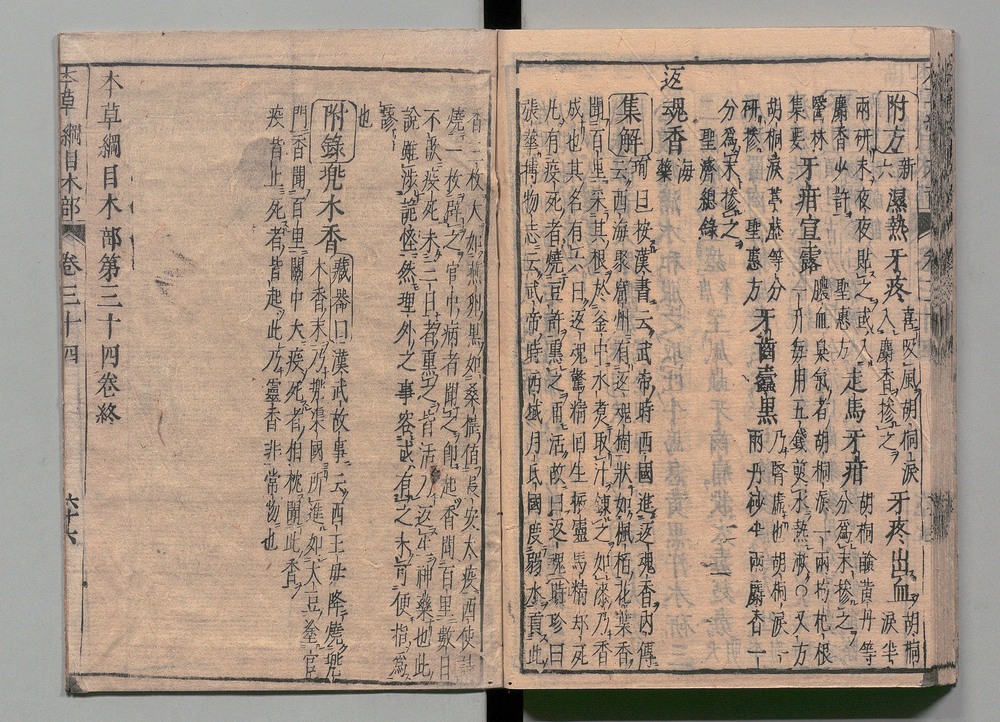 附方新六濕熱牙疼喜吸風胡桐淚入麝香摻之牙疼出血胡桐淚半
兩研末夜夜貼之或入麝香少許聖惠方走馬牙疳胡桐鹼黃丹等分為末摻之
醫林集要牙疳宣露膿血臭氣者胡桐淚一兩枸杞根一升每用五錢煎水熱漱〇又方
胡桐淚葶藶等分研摻聖惠方牙齒蠹黑乃腎虛也胡桐淚一兩丹砂半兩麝香一
分為末摻之
聖濟總錄
返魂香海藥
集解珣曰按漢書云武帝時西國進返魂香內傳
云西海聚窟州有返魂樹狀如楓栢花葉香
聞百里采其根於釜中水煮取汁鍊之如漆乃香
成也其名有六曰返魂驚精回生振靈馬精却死
凡有疫死者燒豆許熏之再活故曰返魂時珍曰
張華博物志云武帝時西域月氏國度弱水貢此
香三枚大如燕卵黑如桑椹值長安大疫西使請
燒一枚辟之宮中病者聞之即起香聞百里數日
不歇疫死未三日者熏之皆活乃返生神藥也此
說雖涉詭怪然理外之事容或有之未可便指為
謬也
附錄兜木香藏器曰漢武故事云西王母降燒兜
木香末乃兜渠國所進如大豆塗宮
門香聞百里關中大疫死者相枕聞此香
疫皆止死者皆起此乃靈香非常物也
本草綱目木部第三十四卷終
本草綱目木部 卷三十四 六十六